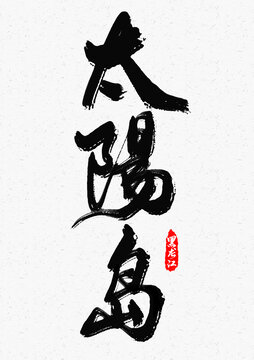 太陽島
黑龙江